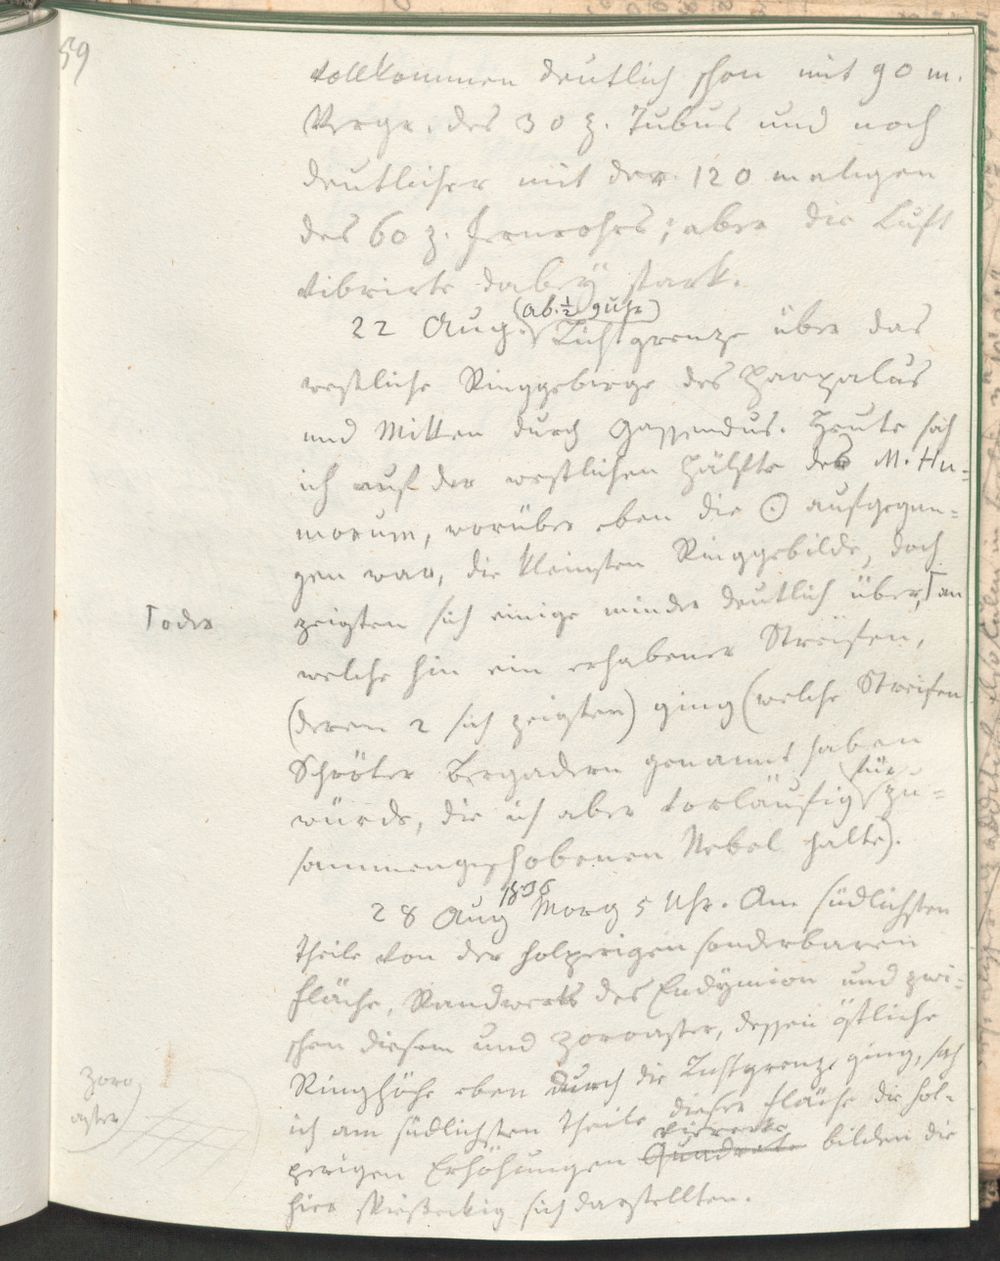 59
vollkommen deutlich schon mit 90 m.
Vergr. des 30 z. Tubus und noch
deutlicher mit der 120 maligen
des 60 z. Fernrohrs; aber die Luft
vibrirte dabeÿ stark.
22 Aug. (ab. ½ 9 Uhr) Lichtgrenze über das
westliche Ringgebirge des Harpalus
und Mitten durch Gassendus. Heute sah
ich auf der westlichen Hälfte des M. Hu-
morum, worüber eben die ☉ aufgegan-
gen war, die kleinsten Ringgebilde, doch
zeigten sich einige minder deutlich über, Γ an
Γ oder
welche hin ein erhabener Streifen,
(deren 2 sich zeigten) ging (welche Streifen
Schröter Bergadern genannt haben
würde, die ich aber vorläufig für zu-
sammengeschobenen Nebel halte).
28 Aug 1836 Morg 5 Uhr. Am südlichsten
Theile von der holperigen sonderbaren
Fläche, Randwerts des Endÿmion und zwi-
schen diesem und Zoroaster, dessen östliche
Ringhöhe eben durch die Lichtgrenze ging, sah
Zoro
aster
ich am südlichsten Theile dieser Fläche die hol-
perigen Erhöhungen Quadrate Vierecke bilden die
hier spießeckig sich darstellten.